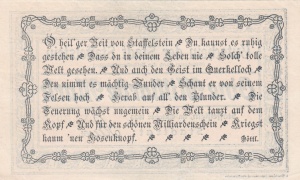 O heil'ger Veit von Staffelstein Du kannst es ruhig
gestehen Dass du in deinem Leben nie Solch' tolle
Welt gesehen. Und auch den Geist im Querkelloch
Den nimmt es mächtig Wunder Schaut er von seinem
Felsen hoch Herab auf all' den Plunder. Die
Teuerung wächst ungemein Die Welt tanzt auf dem
Kopf Und für den schönen Milliardenschein Kriegst
kaum 'nen Hosenknopf.